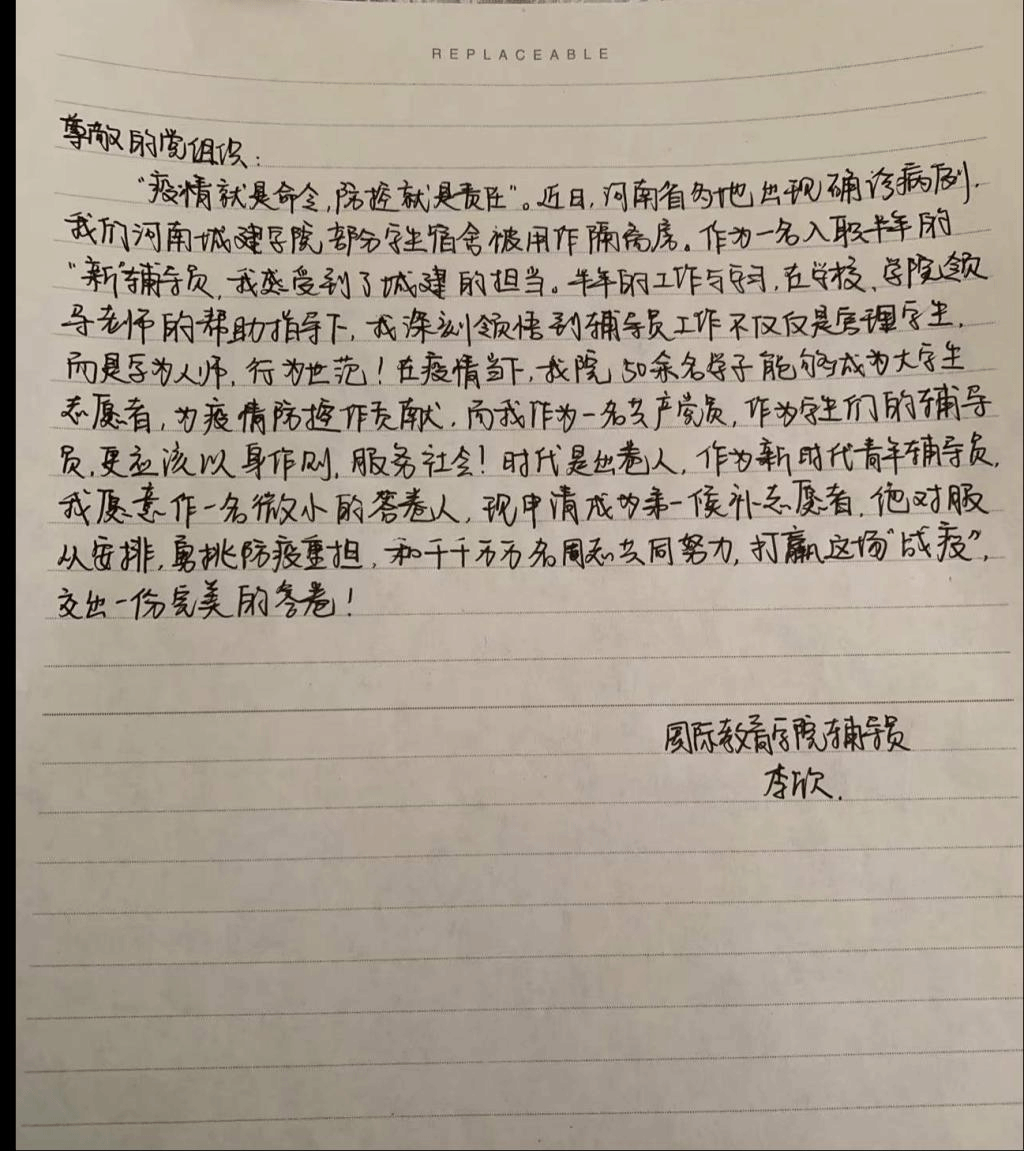 REPLACEABLE
尊敬的党组织：
“疫情就是命令,防控就是责任”。近日,河南省多地出现确诊病例.
我们河南城建学院部分学生宿舍被用作隔离房。作为一名入职半年的
“新”辅导员,我感受到了城建的担当。半年的工作与学习,在学校、学院领
导老师的帮助指导下,我深刻领悟到辅导员工作不仅仅是管理学生,
而是学为人师,行为世范!在疫情当下,我院50余名学子能够成为大学生
志愿者,为疫情防控作贡献,而我作为一名共产党员,作为学生们的辅导
员,更应该以身作则,服务社会!时代是出卷人,作为新时代青年辅导员,
我愿意作一名微小的答卷人,现申请成为第一候补志愿者,绝对服
从安排,勇挑防疫重担,和千千万万名同志共同努力,打赢这场“战疫”,
交出一份完美的答卷!
国际教育学院辅导员
李欣.